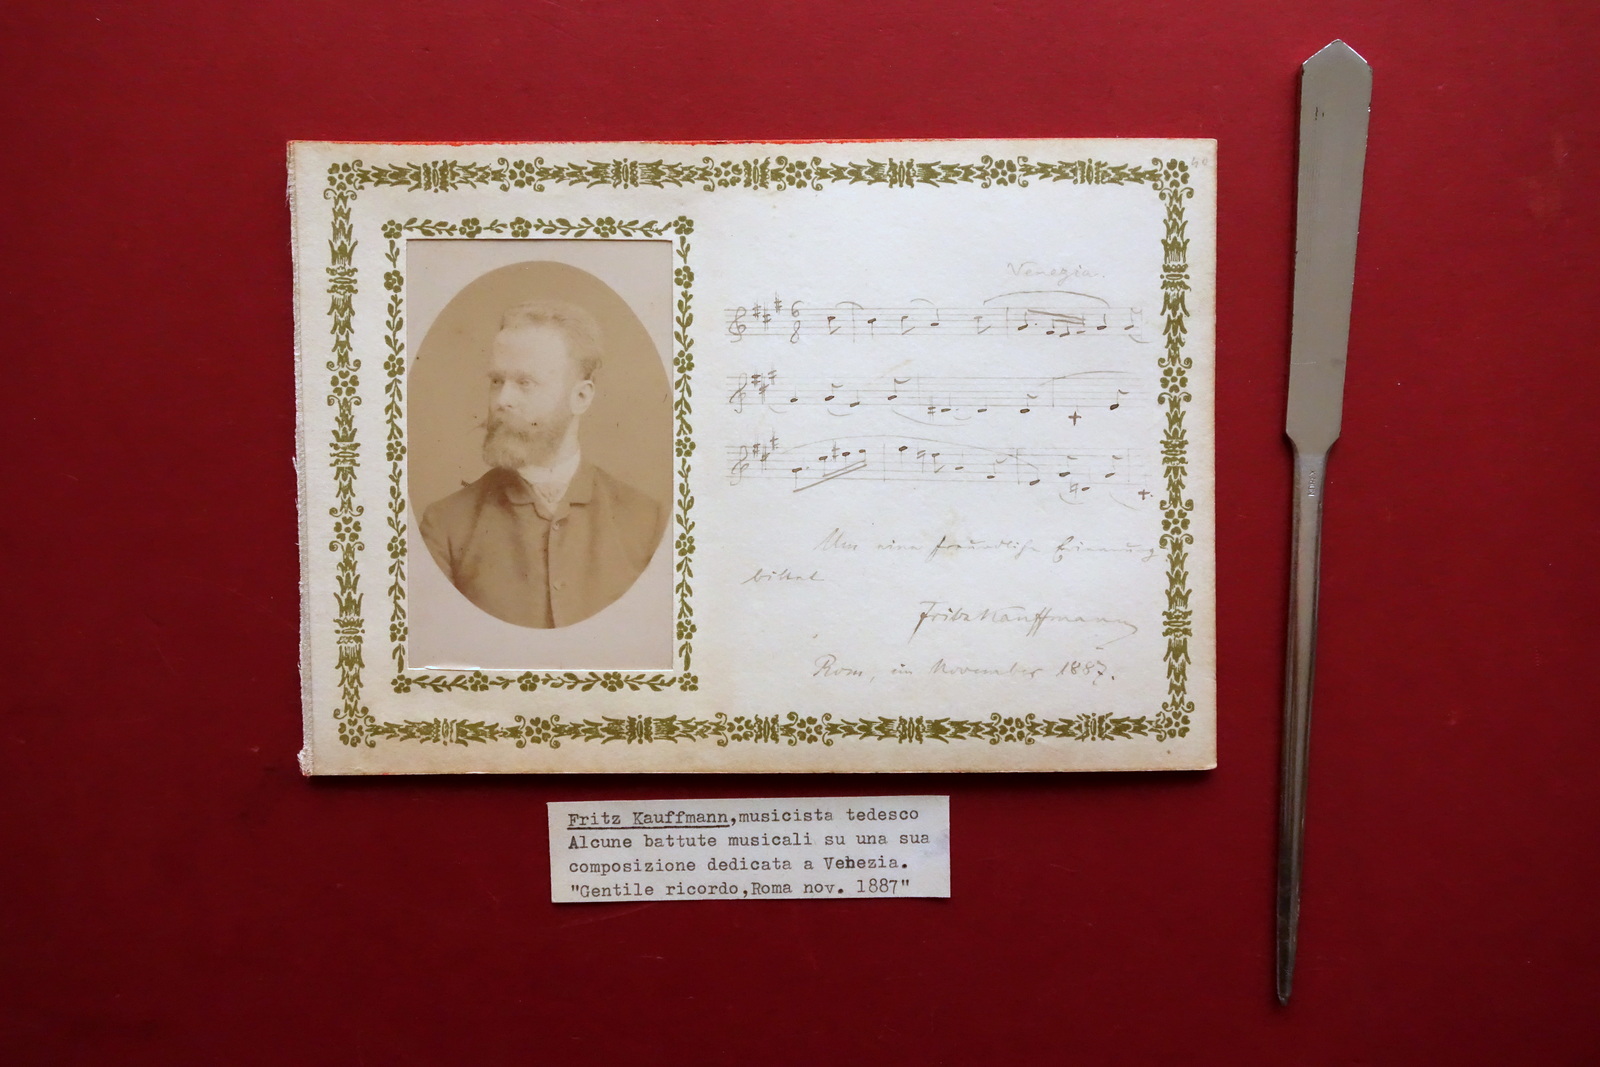 40
Venezia.
6
8
Um eine freundliche Erinnerung
bittet
Fritz Kauffmann
Rom, im November 1887.
Fritz Kauffmann,musicista tedesco
Alcune battute musicali su una sua
composizione dedicata a Venezia.
"Gentile ricordo,Roma nov. 1887"